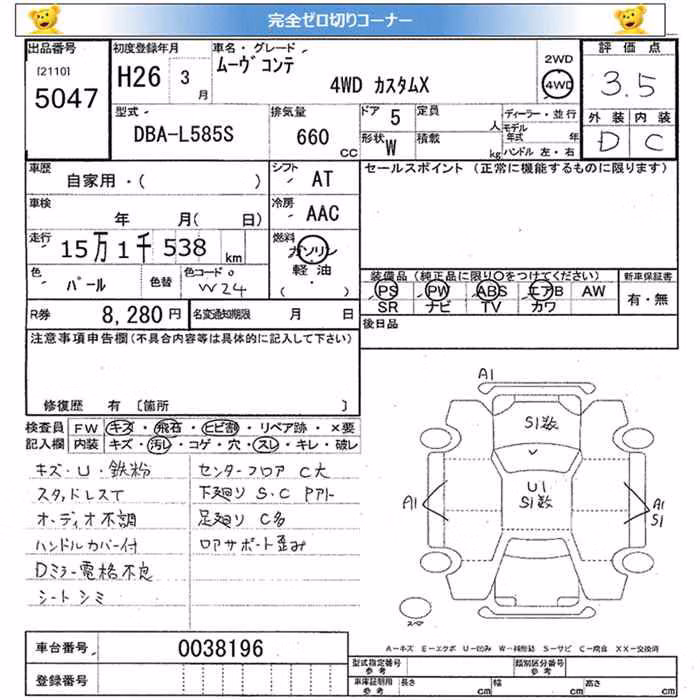 完全ゼロ切りコーナー
出品番号
[2110]
5047
初度登録年月
H26 3 月
車名・グレード
ムーヴコンテ
4WD カスタムX
2WD
4WD
評価点
3.5
外装 内装
D C
型式
DBA-L585S
排気量
660 CC
ドア 5
定員 人
形状 W
積載 kg
ディーラー・並行
モデル年式 年
ハンドル 左・右
車歴
自家用・( )
シフト AT
車検
年 月( 日)
冷房 AAC
走行
15万1千538 km
燃料
ガソリン
軽油
( )
色
パール
色替
色コード
W24
R券
8,280円
名変通知期限 月 日
セールスポイント (正常に機能するものに限ります)
装備品 (純正品に限り〇をつけてください)
PS PW ABS エアB AW
SR ナビ TV カワ
新車保証書
有・無
後日品
注意事項申告欄(不具合内容等は具体的に記入して下さい)
修復歴 有 〔箇所 〕
検査員記入欄
FW キズ・飛石・ヒビ割・リペア跡・×要
内装 キズ・汚レ・コゲ・穴・スレ・キレ・破レ
キズ・U・鉄粉
スタッドレスT
オーディオ不調
ハンドルカバー付
Dミラー電格不良
シートシミ
センターフロア C大
下廻り S・C Pアト
足廻り C多
ロアサポート歪み
A1
S1数
U1
S1数
A1
A1
S1
スペア
A－キズ E－エクボ U－凹み W－補修跡 S－サビ C－腐食 XX－交換済
車台番号
0038196
登録番号
型式指定番号
参考
類別区分番号
参考
車庫証明用
参考
長さ cm
幅 cm
高さ cm